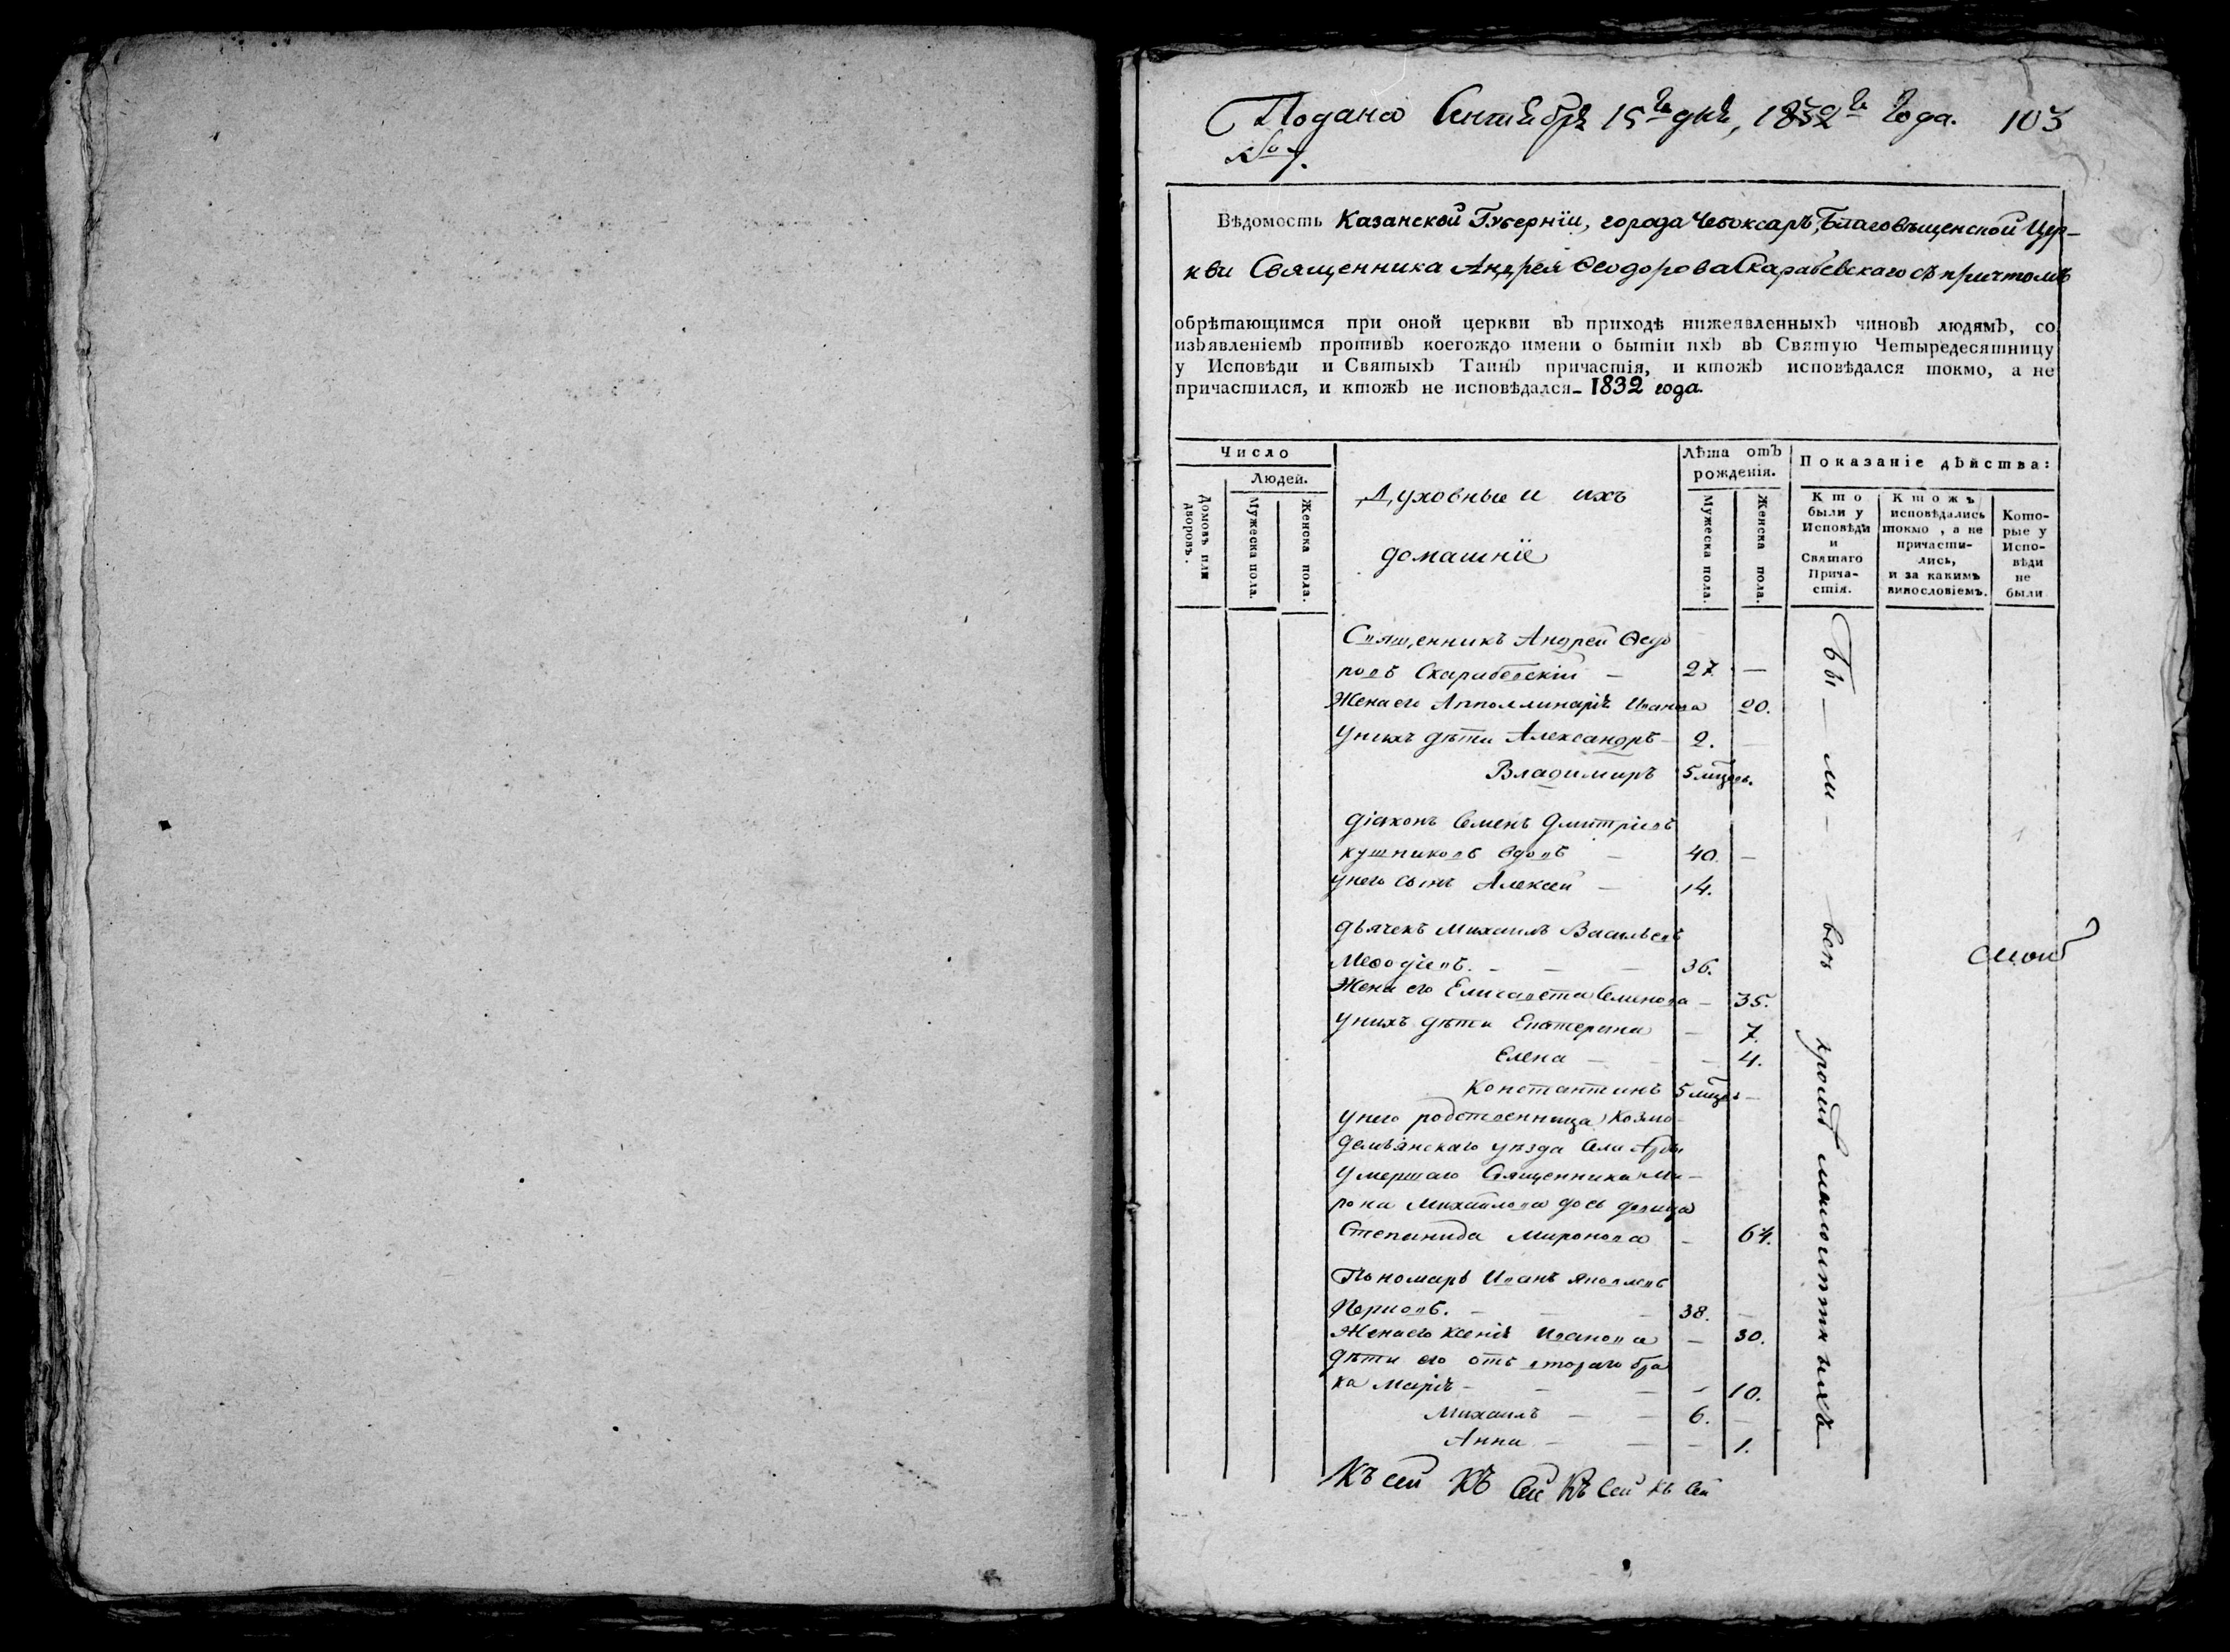 Подана Сентября 15го дня, 1832го года. 103
№ 7.
Вѣдомость Казанской Губерніи, города Чебоксаръ, Благовѣщенской Цер-
кви Священника Андрея Ѳеодорова Скарабевскаго съ причтомъ
обрѣтающимся при оной церкви въ приходѣ нижеявленныхъ чиновъ людямъ, со
изъявленіемъ противъ коегождо имени о бытіи ихъ въ Святую Четыредесятницу
у Исповѣди и Святыхъ Таинъ причастія, и ктожъ исповѣдался токмо, а не
причастился, и ктожъ не исповѣдался 1832 года.
Число
Людей.
Домовъ или дворовъ.
Мужеска пола.
Женска пола.
Духовные и ихъ
домашніе
Лѣта отъ
рожденія.
Мужеска пола.
Женска пола.
Показаніе дѣйства:
Кто
были у
Исповѣди
и
Святаго
Прича-
стія.
Ктожъ
исповѣдались
токмо, а не
причасти-
лись,
и за какимъ
винословіемъ.
Кото-
рые у
Испо-
вѣди
не
были
Священникъ Андрей Ѳедо
ровъ Скарабевскій — 27. —
Жена его Апполлинарія Иванова 20.
У нихъ дѣти Александръ — 2. —
Владимиръ 5 мцовъ.
Діаконъ Семенъ Дмитріевъ
кушниковъ вдовъ — 40. —
у него сынъ Алексѣй — 14.
Дьячекъ Михаилъ Васильевъ
Меѳодіевъ. — — — 36.
Жена его Елисавета Семенова — 35.
У нихъ дѣти Екатерина — 7.
Елена — — — 4.
Константинъ 5 мцовъ —
У него родственница Козмо-
демьянскаго уѣзда Села
Умершаго Священника Ми-
рона Михайлова дочь девица
Степанида Миронова — 64.
Пономарь Иванъ Яковлевъ
— — 38. —
Жена его Ксенія Иванова — 30.
Дѣти его отъ втораго бра
ка Марія — — — — 10.
Михаилъ — — 6. —
Анна — — — 1.
Бы — ли — всѣ кромѣ малолѣтнихъ
Къ сей Къ Сей Къ Сей Къ Сей